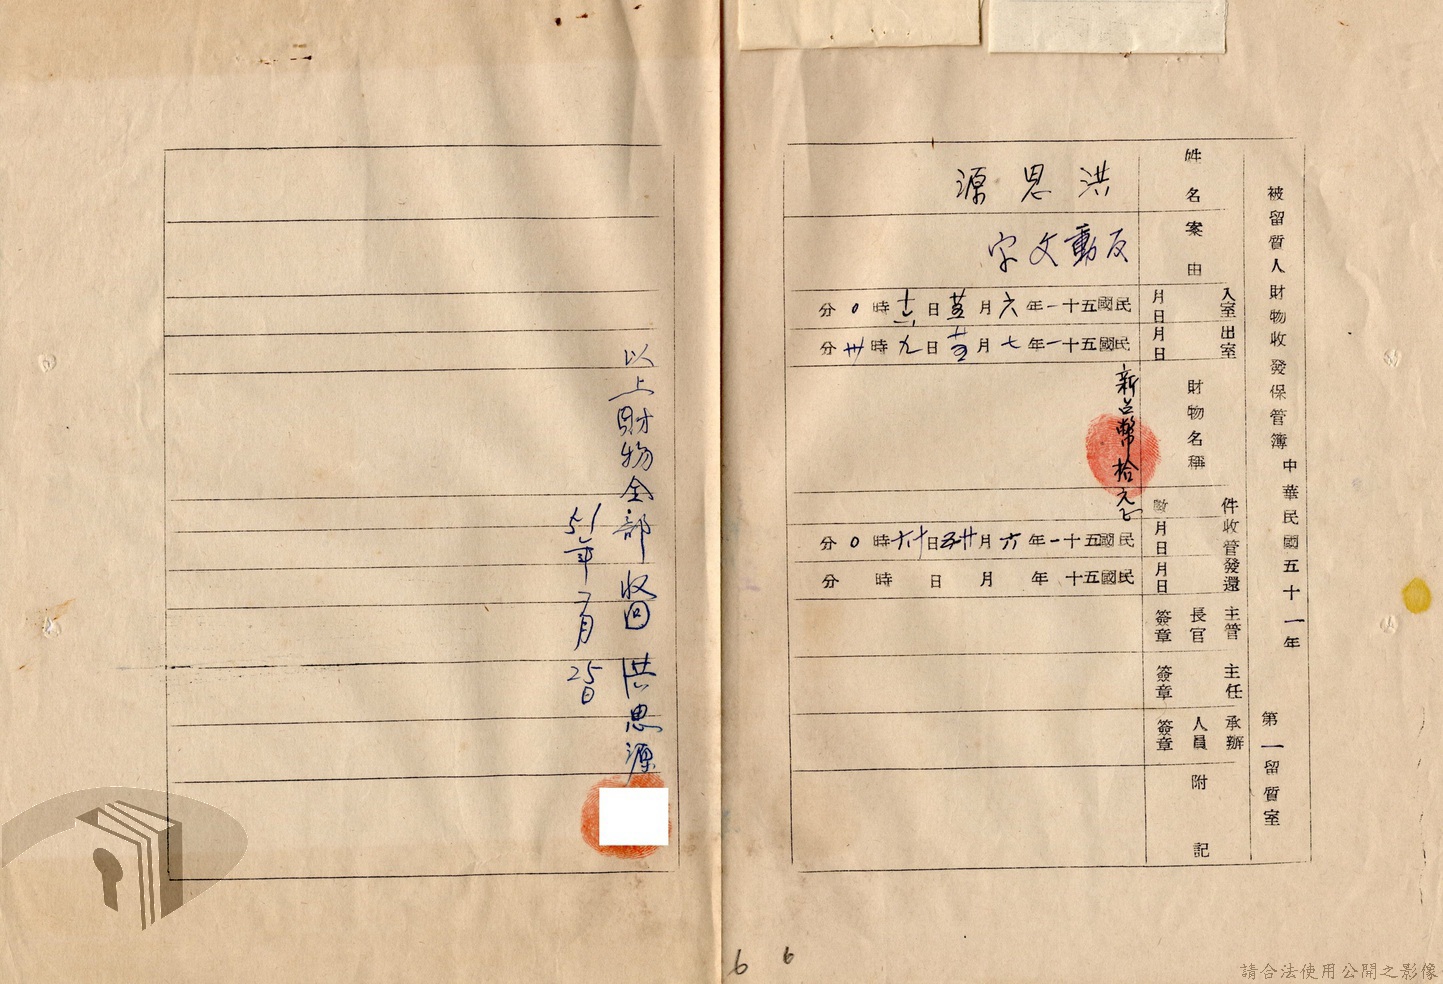 被留質人財物收發保管簿 中華民國五十一年 第一留質室
姓名 洪思源
案由 反動文字
入室月日 民國五十一年六月廿五日十六時0分
出室月日 民國五十一年七月廿五日九時卅分
財物名稱件數 新台幣拾元正
收管月日 民國五十一年六月廿五日十六時0分
發還月日 民國五十 年 月 日 時 分
主管長官簽章
主任簽章
承辦人員簽章
附記
以上財物全部收回 洪思源
51年7月25日
6 6
請合法使用公開之影像